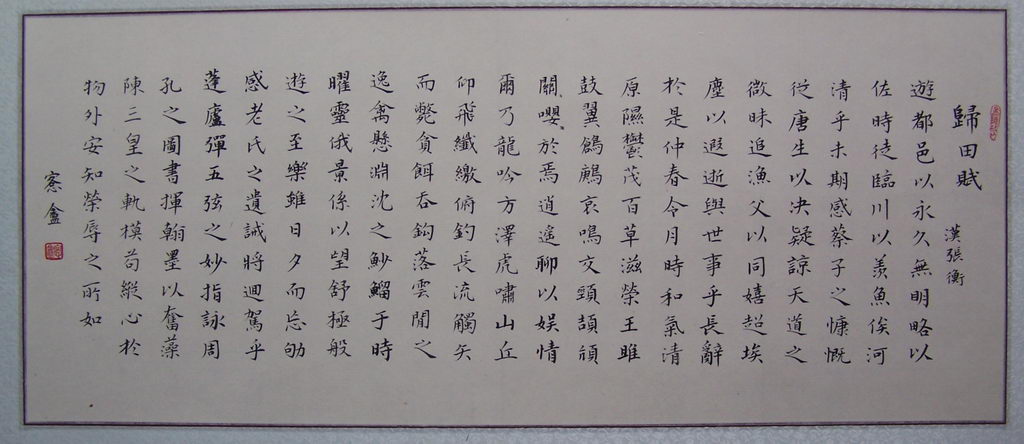 歸田賦 漢張衡
遊都邑以永久無明略以
佐時徒臨川以羨魚俟河
清乎未期感蔡子之慷慨
從唐生以決疑諒天道之
微昧追漁父以同嬉超埃
塵以遐逝與世事乎長辭
於是仲春令月時和氣清
原隰鬱茂百草滋榮王雎
鼓翼鶬鶊哀鳴交頸頡頏
關、嚶、於焉逍遙聊以娛情
爾乃龍吟方澤虎嘯山丘
仰飛纖繳俯釣長流觸矢
而斃貪餌吞鉤落雲閒之
逸禽懸淵沈之魦鰡于時
曜靈俄景係以望舒極般
遊之至樂雖日夕而忘劬
感老氏之遺誡將迴駕乎
蓬廬彈五弦之妙指詠周
孔之圖書揮翰墨以奮藻
陳三皇之軌模苟縱心於
物外安知榮辱之所如
盦